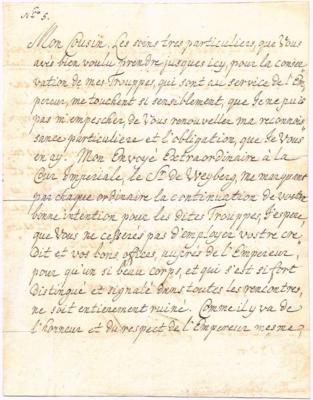 No. 5.
Mon Cousin. Les soins tres particuliers, que Vous
avés bien voulu prendre jusques icy, pour la conser
vation de mes Trouppes, qui sont au service de l'Em,
pereur, me touchent si sensiblement, que Je ne puis
pas m'empescher, de Vous renouveller ma reconnois
sance particuliere et l'obligation, que Je Vous
en ay. Mon Envoyé Extraordinaire à la
Cour Imperiale, le Sr. de Weyberg, me marquant
par chaque ordinaire la continuation de vostre
bonne intention pour les dites Trouppes, J'espere
que Vous ne cesserés pas d'employer vostre cre
dit et vos bons offices, auprés de l'Empereur,
pour qu'un si beau corps, et qui s'est si fort
distingué et signalé dans toutes les rencontres,
ne soit entierement ruiné. Comme il y va de
l'honneur et du respect de l'Empereur mesme,